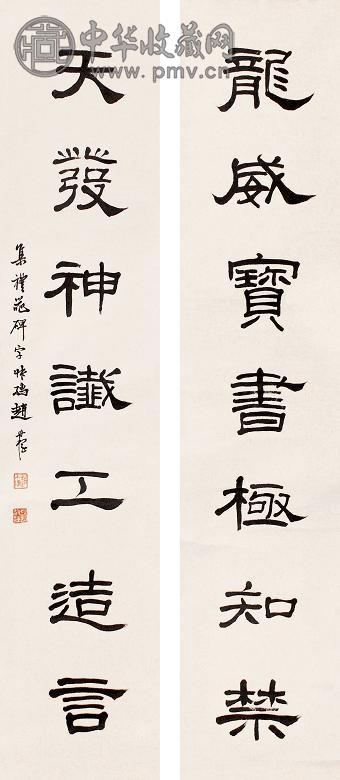 中华收藏网
www.pmv.cn
龍威寶書極知禁
天發神讖工造言
集禮器碑字
趙